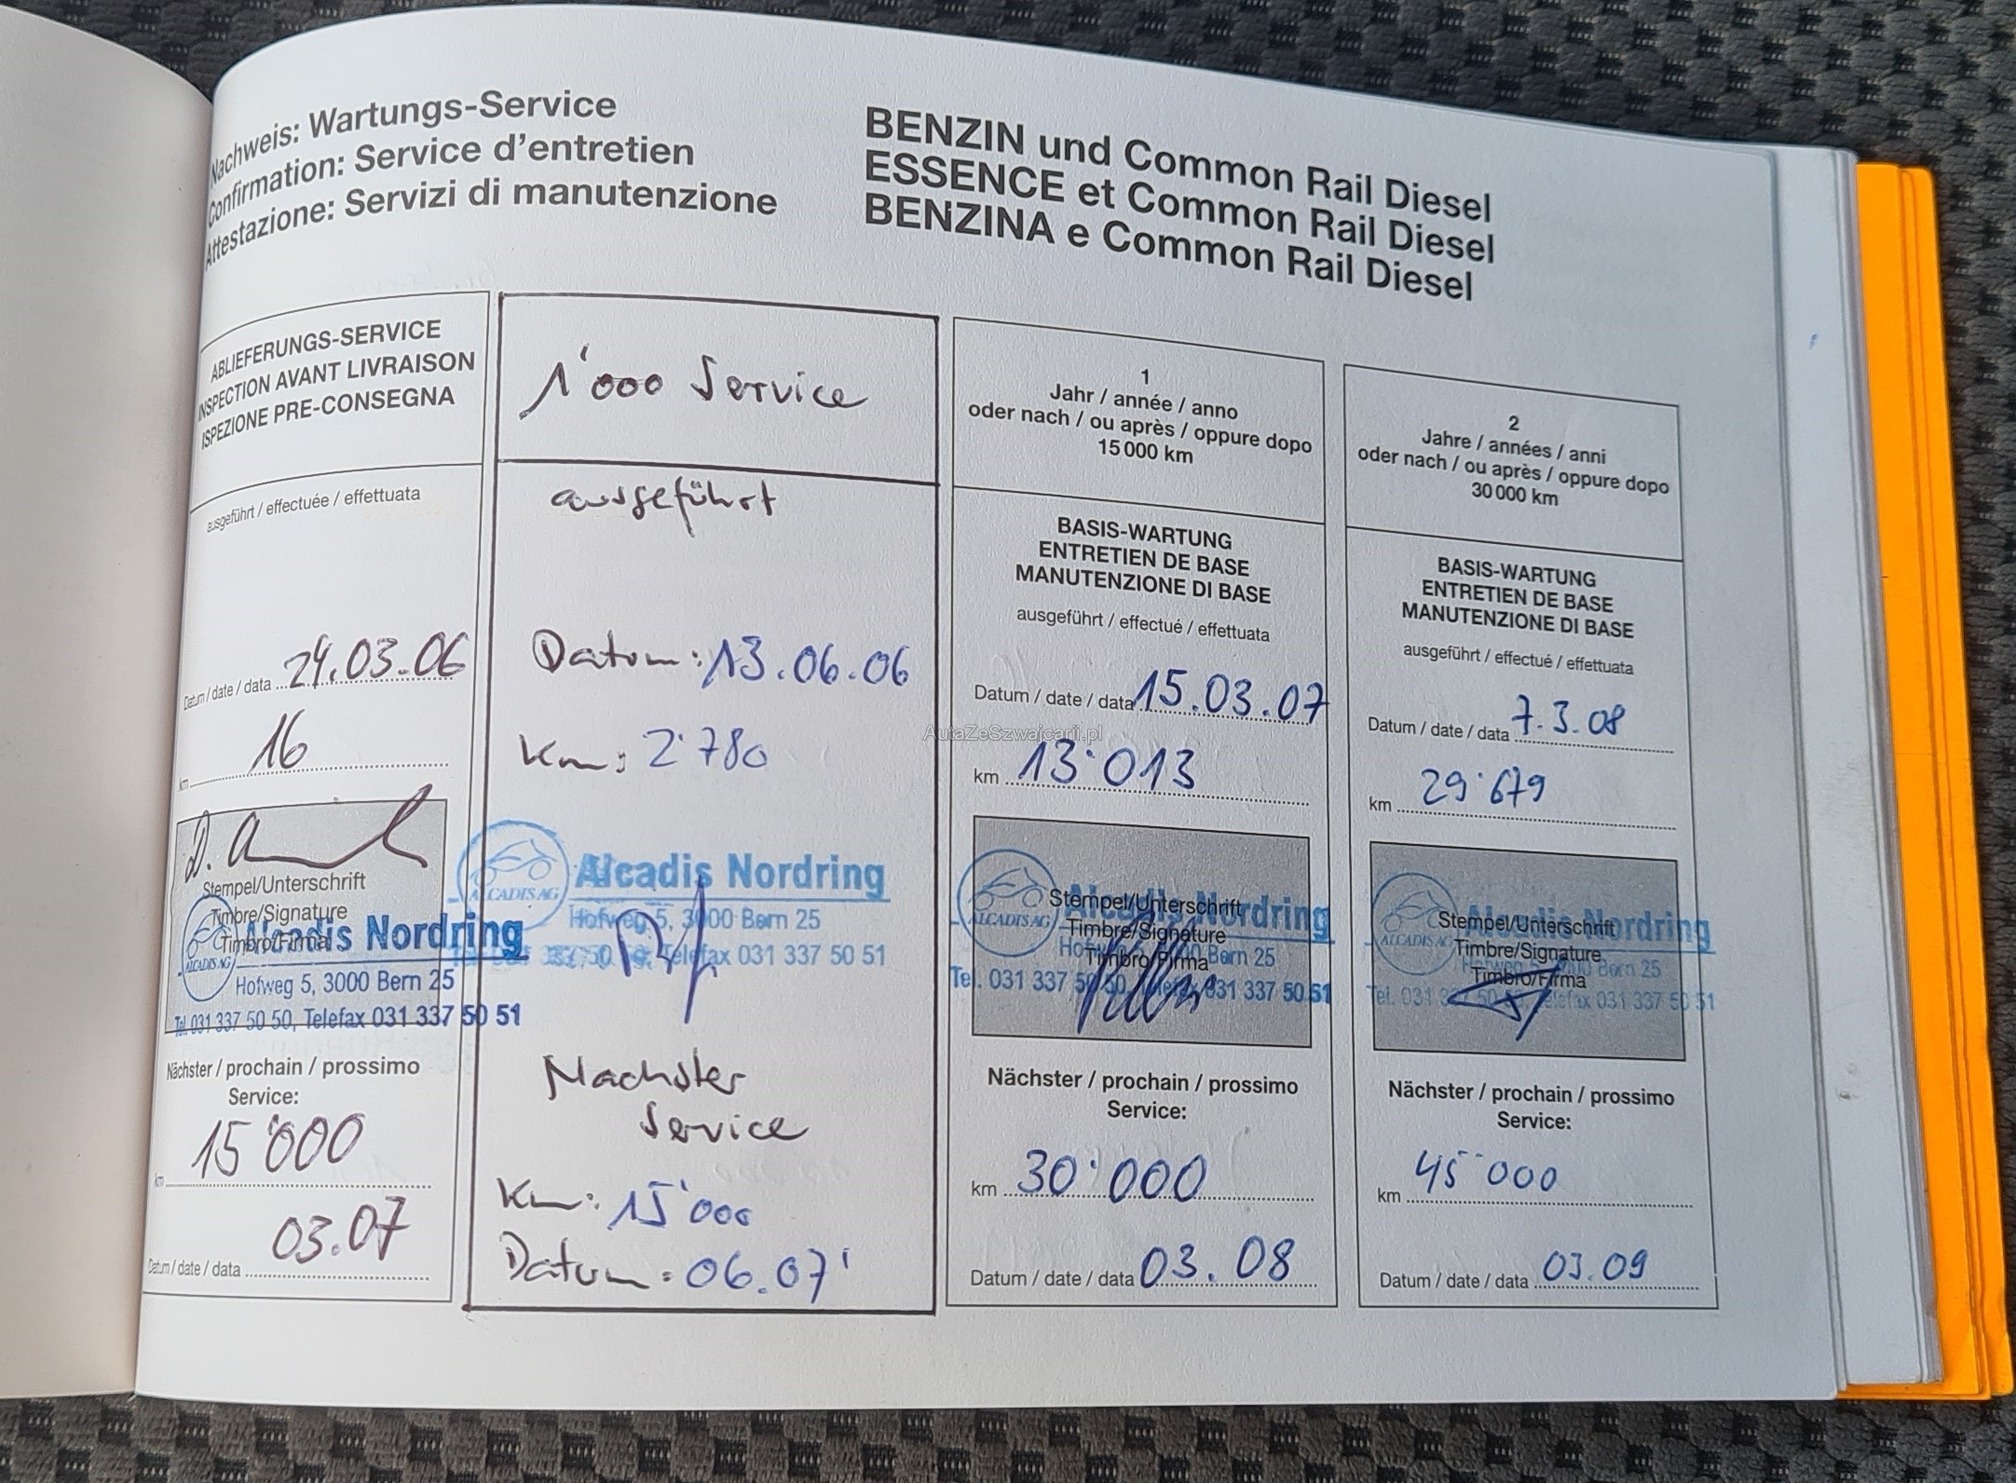 Nachweis: Wartungs-Service
Confirmation: Service d'entretien
Attestazione: Servizi di manutenzione
BENZIN und Common Rail Diesel
ESSENCE et Common Rail Diesel
BENZINA e Common Rail Diesel
ABLIEFERUNGS-SERVICE
INSPECTION AVANT LIVRAISON
ISPEZIONE PRE-CONSEGNA
ausgeführt / effectuée / effettuata
Datum / date / data 24.03.06
km 16
Stempel/Unterschrift
Timbre/Signature
Timbro/Firma
ALCADIS AG
Alcadis Nordring
Hofweg 5, 3000 Bern 25
Tel. 031 337 50 50, Telefax 031 337 50 51
Nächster / prochain / prossimo
Service:
km 15'000
Datum / date / data 03.07
1'000 Service
ausgeführt
Datum: 13.06.06
Km: 2'780
ALCADIS AG
Alcadis Nordring
Hofweg 5, 3000 Bern 25
Telefax 031 337 50 51
Nächster
Service
Km: 15'000
Datum: 06.07'
1
Jahr / année / anno
oder nach / ou après / oppure dopo
15 000 km
BASIS-WARTUNG
ENTRETIEN DE BASE
MANUTENZIONE DI BASE
ausgeführt / effectué / effettuata
Datum / date / data 15.03.07
AutaZeSzwajcarii.pl
km 13'013
Stempel/Unterschrift
Timbre/Signature
Timbro/Firma
ALCADIS AG
Alcadis Nordring
Hofweg 5, 3000 Bern 25
Tel. 031 337 50 50, Telefax 031 337 50 51
Nächster / prochain / prossimo
Service:
km 30'000
Datum / date / data 03.08
2
Jahre / années / anni
oder nach / ou après / oppure dopo
30 000 km
BASIS-WARTUNG
ENTRETIEN DE BASE
MANUTENZIONE DI BASE
ausgeführt / effectué / effettuata
Datum / date / data 7.3.08
km 29'679
Stempel/Unterschrift
Timbre/Signature
Timbro/Firma
ALCADIS AG
Alcadis Nordring
Hofweg 5, 3000 Bern 25
Tel. 031 337 50 50, Telefax 031 337 50 51
Nächster / prochain / prossimo
Service:
km 45'000
Datum / date / data 03.09